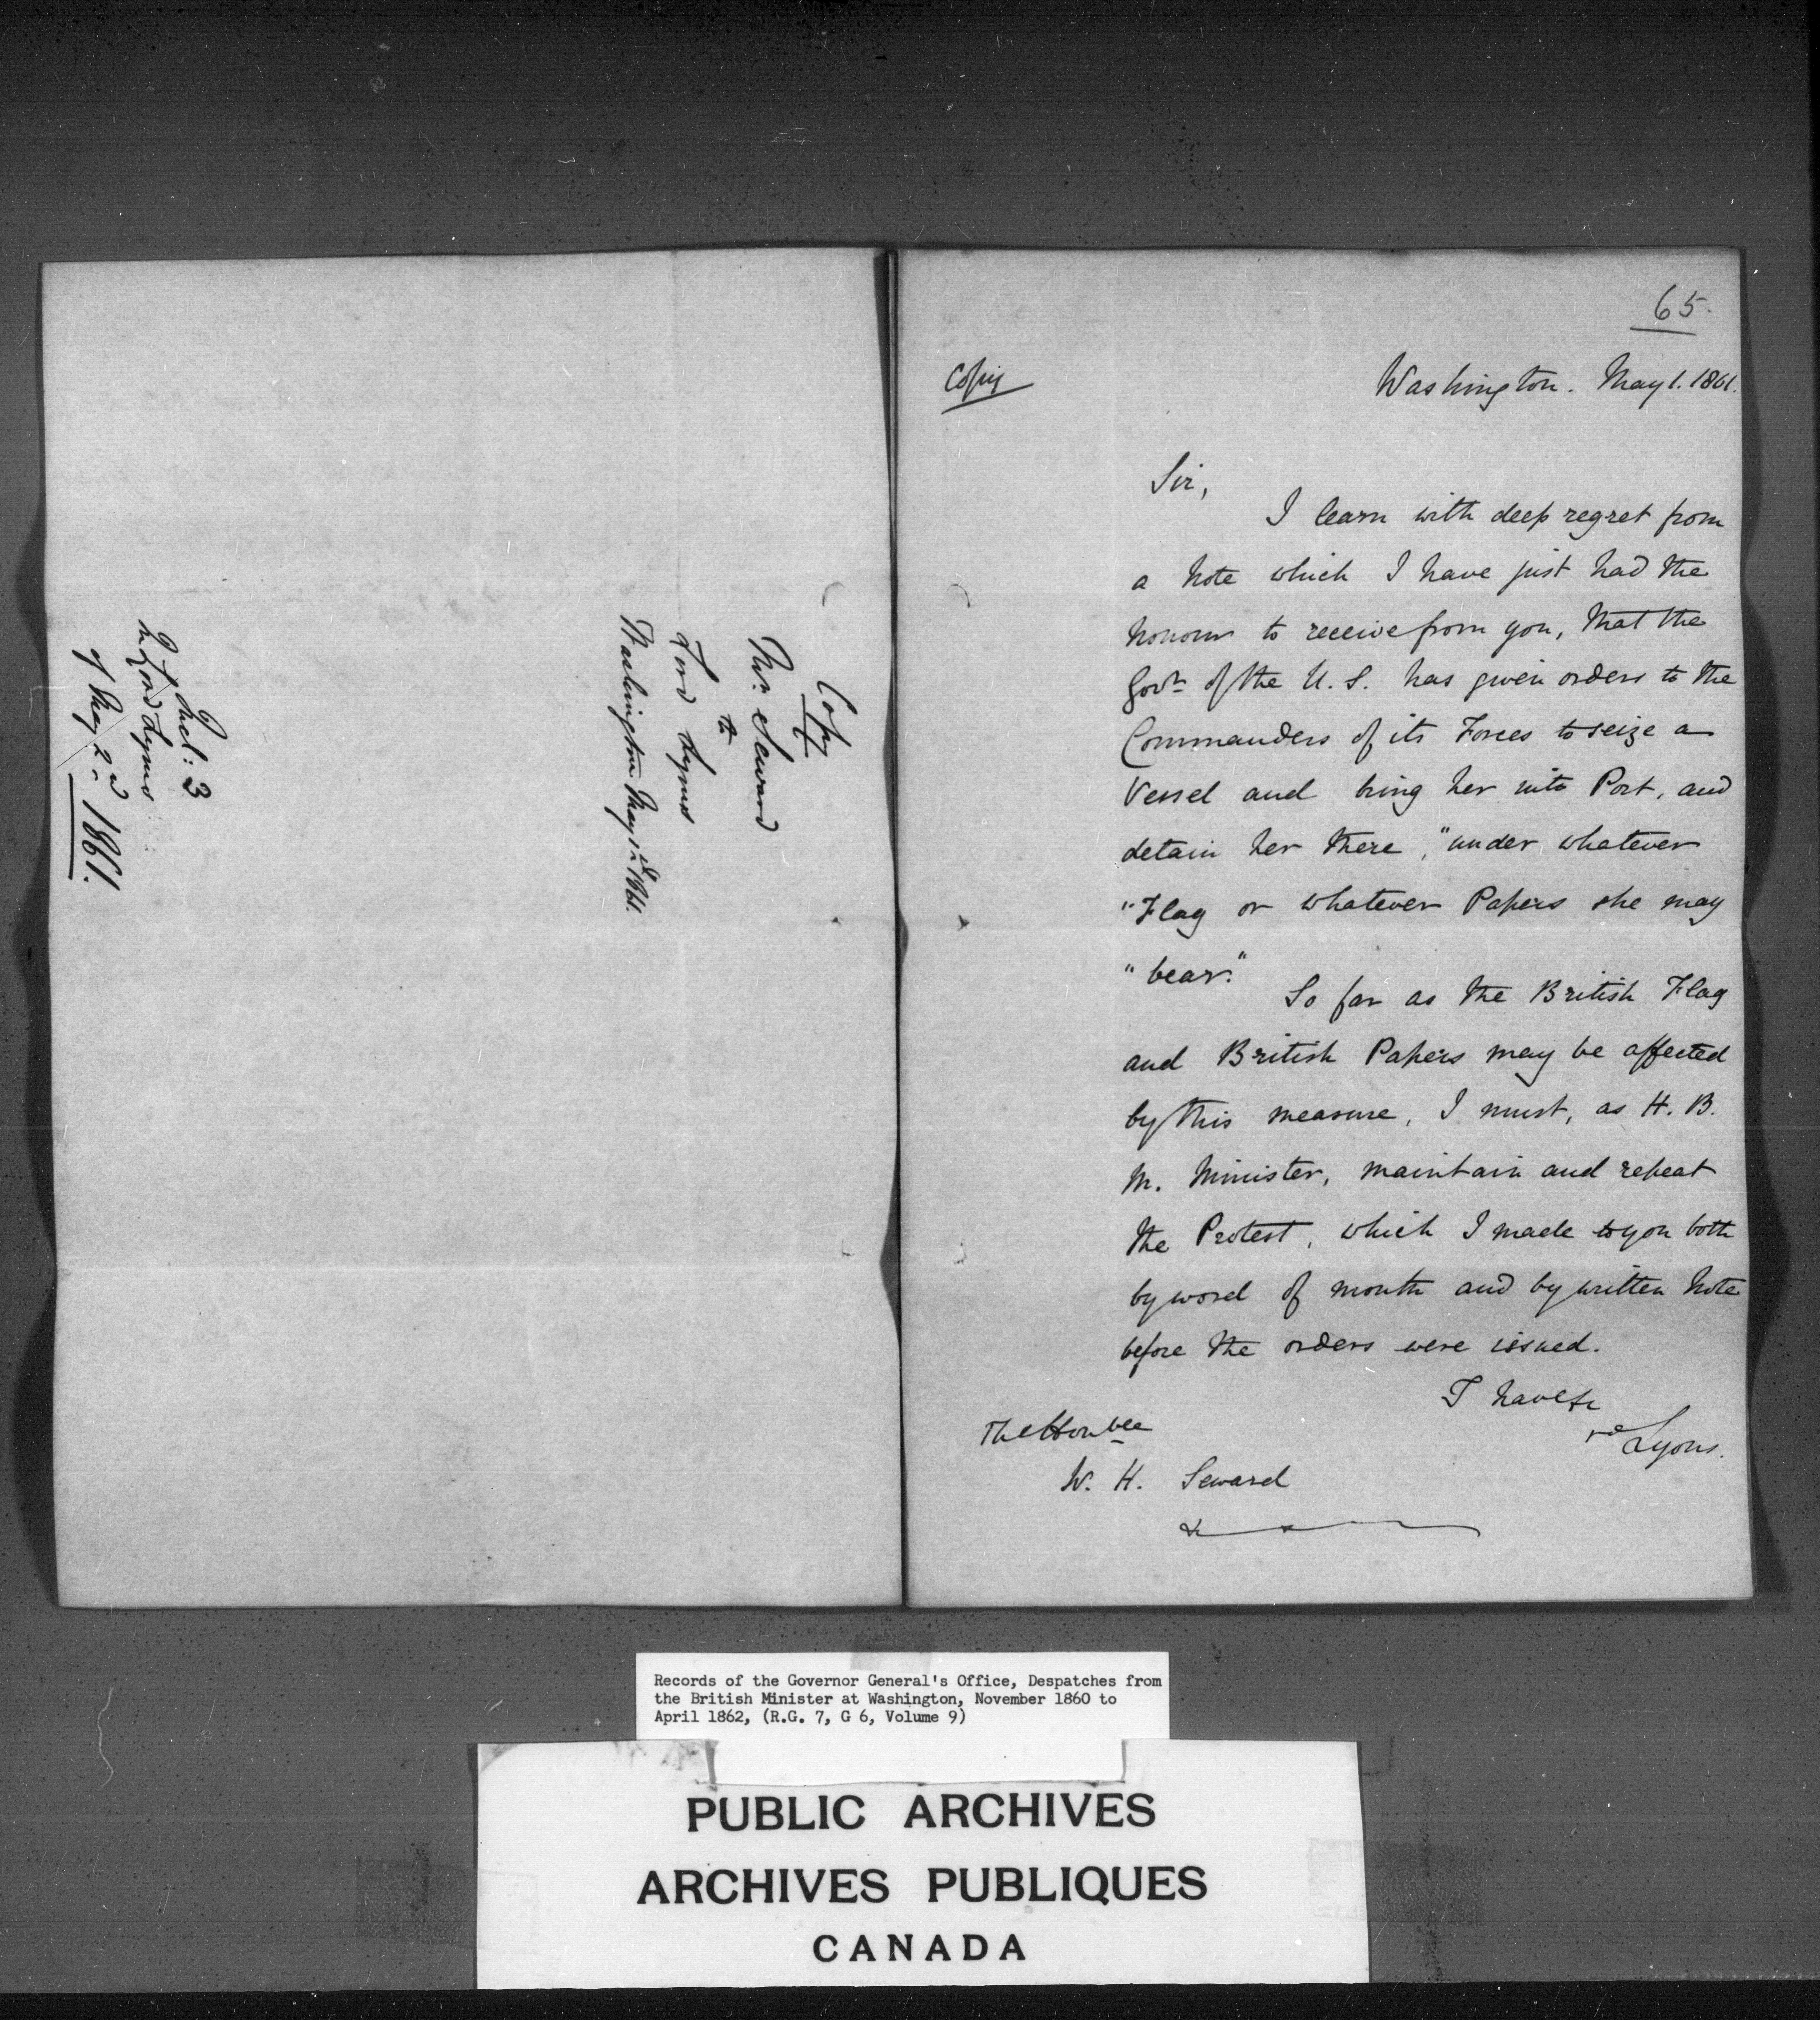 Copy
Mr. Seward
to
Lord Lyons
Washington May 1861.
Incl: 3
in Lord Lyons
of May 2nd 1861.
65.
Copy
Washington. May 1. 1861.
Sir,
I learn with deep regret from
a Note which I have just had the
honour to receive from you, that the
Govt. of the U. S. has given orders to the
Commanders of its Forces to seize a
Vessel and bring her into Port, and
detain her there, "under whatever
"Flag or whatever Papers she may
"bear."
So far as the British Flag
and British Papers may be affected
by this measure, I must, as H. B.
M. Minister, maintain and repeat
the Protest, which I made to you both
by word of mouth and by written Note
before the orders were issued.
I have &c
Lyons.
The Honble
W. H. Seward
&
Records of the Governor General's Office, Despatches from
the British Minister at Washington, November 1860 to
April 1862, (R.G. 7, G 6, Volume 9)
PUBLIC ARCHIVES
ARCHIVES PUBLIQUES
CANADA